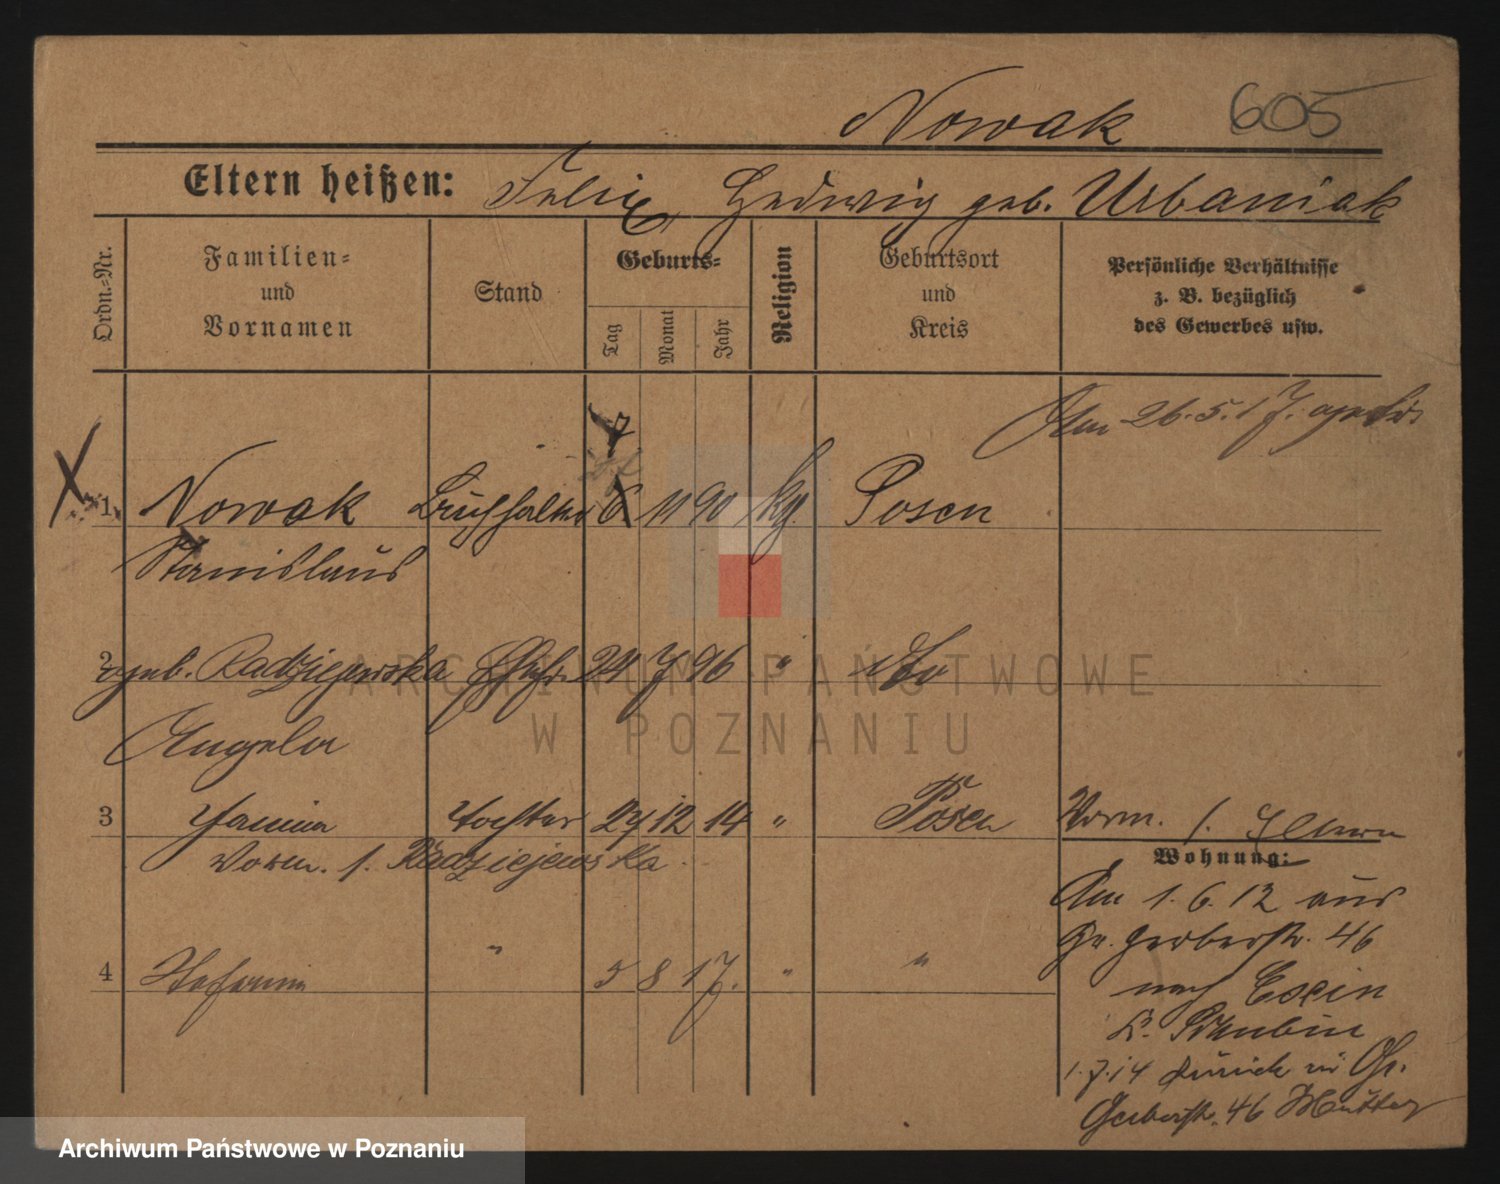 Nowak 605
Eltern heißen: Felix Hedwig geb. Urbaniak
Ordn.-Nr.
Familien-
und
Vornamen
Stand
Geburts-
Tag
Monat
Jahr
Religion
Geburtsort
und
Kreis
Persönliche Verhältnisse
z. B. bezüglich
des Gewerbes usw.
Am 26.5.17.
7
1 Nowak Buchhalter 6 11 90 kg. Posen
Stanislaus
2 geb. Radziejewska Ehefr. 24 7 96 " do
Angela
3 Janina Tochter 24 12 14 " Posen Vorm. s. Eltern
Vorm. s. Radziejewska
Wohnung:
Am 1.6.12 aus
Gr. Gerberstr. 46
4 Stefania " 5 8 17. " "
nach Exin
Kr. Schubin
1.7.14 zurück in Gr.
Gerberstr. 46 Mutter
ARCHIWUM PAŃSTWOWE
W POZNANIU
Archiwum Państwowe w Poznaniu